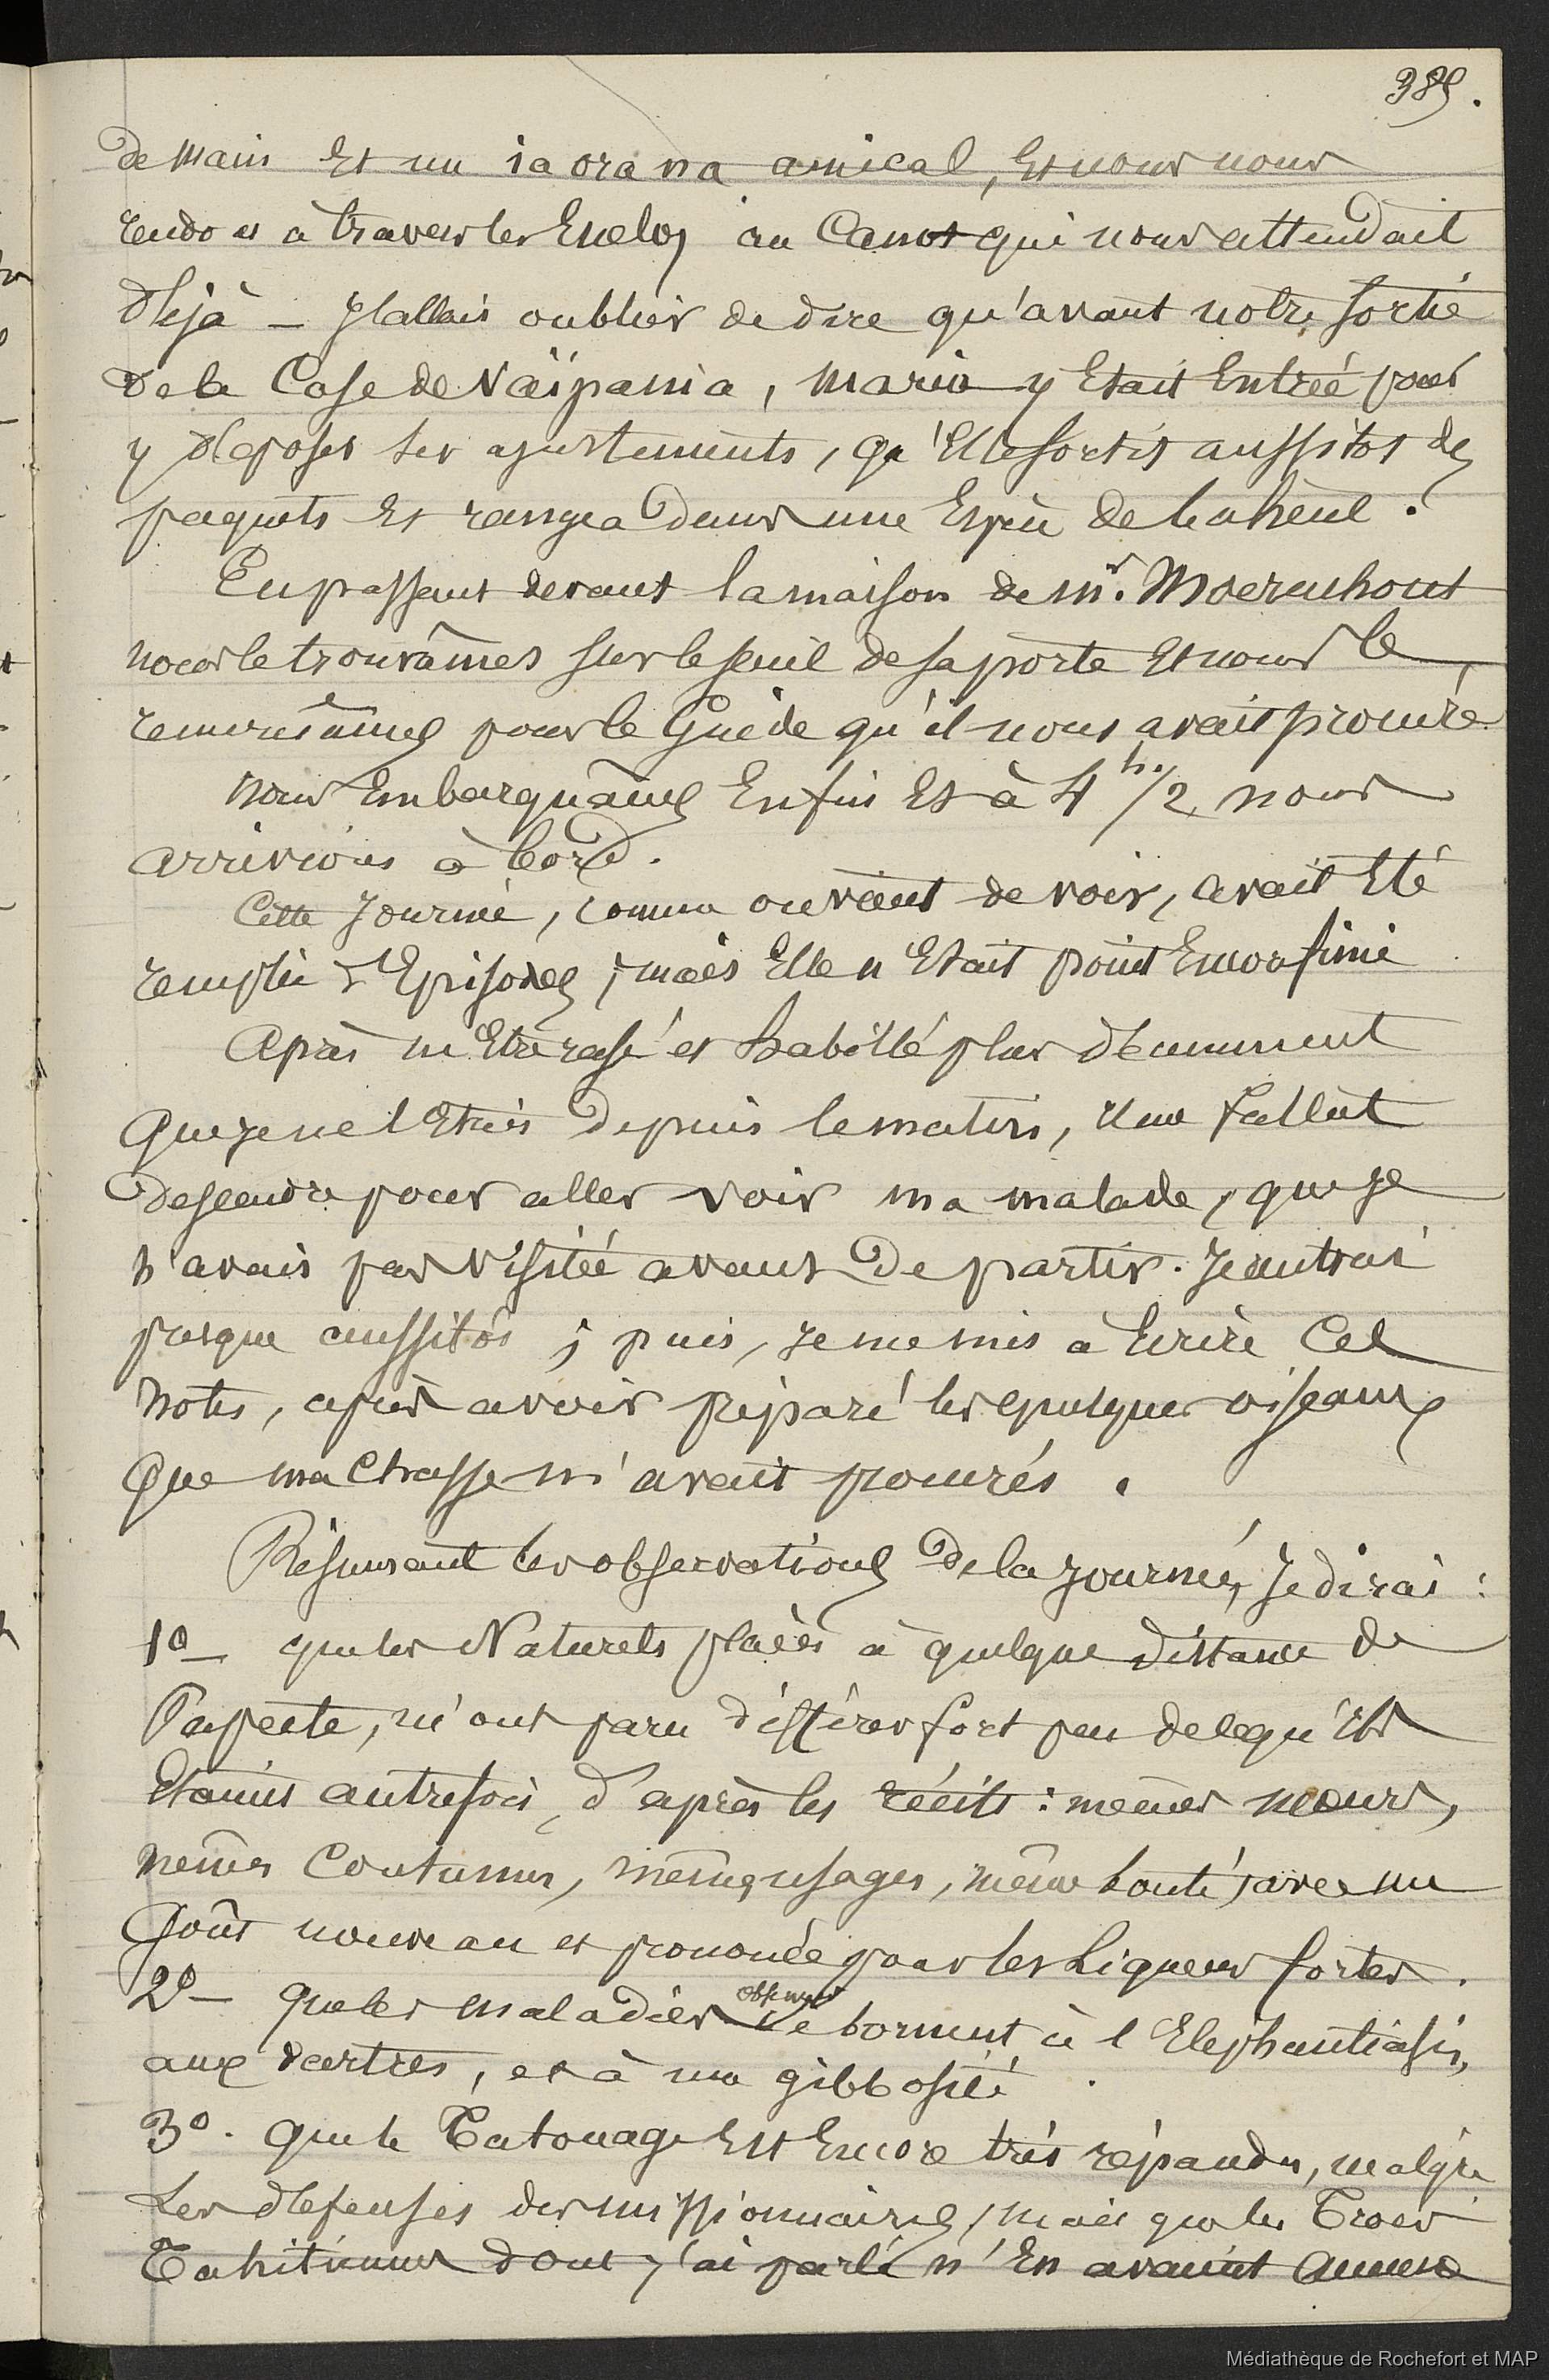 389.
de main et un ia ora na amical, et nous nous
rendo es à travers les Enclos au Canot qui nous attendait
déjà – J'allais oublier de dire qu'avant notre sortie
de la Case de Vaïpania, Maria y était Entrée pour
y déposer ses ajustements, qu'Elle sortit aussitôt des
paquets et rangea dans une Espèce de baheut.
En passant devant la maison de Mr. Moerenhout
nous le trouvâmes sur le seuil de sa porte et nous le
remerciâmes pour le Guide qu'il nous avait procuré
nous Embarquâmes Enfin et à 4 h. 1/2 nous
arrivions à bord.
Cette Journée, comme on vient de voir, avait été
remplie d'Episodes, mais Elle n'Etait point Encore finie
Après m'Etre rasé et habillé plus décemment
que je ne l'Etais depuis le matin, il me fallut
descendre pour aller voir ma malade, que je
n'avais pas visitée avant de partir. Je rentrai
presque aussitôt ; puis, je me mis à Ecrire Ces
notes, après avoir préparé les quelques oiseaux
que ma Chasse m'avait procurés.
Résumant les observations de la journée, Je dirai :
1o – que les Naturels placés à quelque distance de
Papeete, m'ont paru différer fort peu de ce qu'ils
Etaient autrefois, d'après les récits : mêmes moeurs,
mêmes Coutumes, mêmes usages, même bonté, avec un
Goût nouveau et prononcé pour les Liqueurs fortes.
2o – que les maladies observées se bornent à l'Elephantiasis,
aux dartres, et à une gibbosité.
3o. que le Tatouage Est Encore très répandu, malgré
Les défenses des missionnaires, mais que les Trois
Tahitiennes dont j'ai parlé n'En avaient aucune